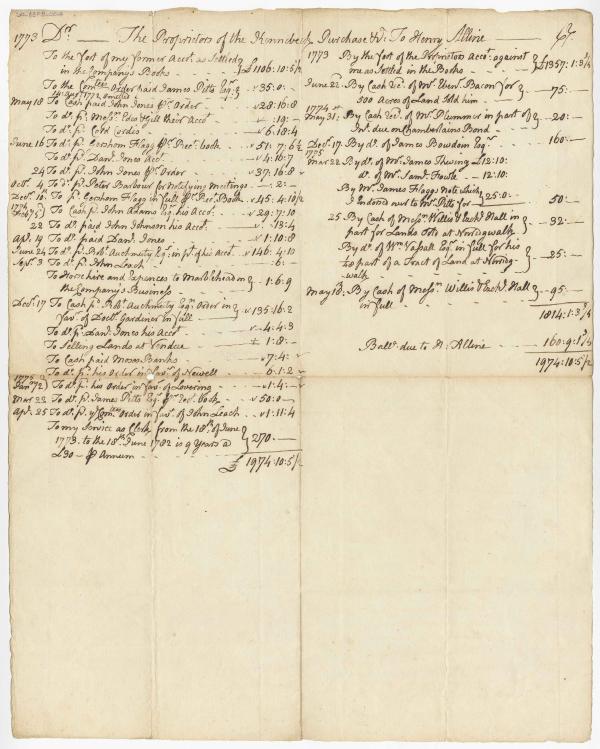 1773 Dr. — The Proprietors of the Kennebeck Purchase &c: To Henry Alline — Cr
To the foot of my former Acct. as Settled
in the Companys Books — £1106:10:5 1/2
To the Comtee. Order paid James Pitts Esqr.
omitted v 35:0:—
May 18 To Cash paid John Jones pr. Order v 28:16:8
To do. pd. Messrs. Edes & Gill their Acct. v :19:—
To do. pd. Cord Cordis v 6:18:4
June 16 To do. pd. Gershom Flagg pr. Rect. book v 51:7:6 1/2
To do. pd. Danl. Jones Acct. v 4:16:7
24 To do. pd. John Jones pr. Order v 37:16:8
Octr. 4 To do. pd. Peter Barbour for Notifying Meetings :2:—
Decr. 10 To do. pd. Gershom Flagg in full pr. Rect. Book v 45:4:10 1/2
1774
Feby 5 To Cash pd. John Adams Esqr. his Acct. v 29:7:10
22 To do. paid John Johnson his Acct. v :13:4
Apl. 19 To do. paid Danl. Jones v 1:10:8
June 24 To do. pd. Robt. Auchmuty Esqr. in pt. of his Acct. v 146:4:10
Sepr. 3 To do. pd. John Leach :6:—
To Horse hire and Expences to Marblehead on
the Company's Business 1:6:9
Decr. 17 To Cash pd. Robt. Auchmuty Esqr. Order in
favr. of Doctr. Gardiner in full v 135:16:2
To do. pd. Danl. Jones his Acct. v 4:4:3
To Selling Lands at Vendue 1:8:—
To Cash paid Moses Banks v 7:4:—
To do. pd. his Order in favr. of Newell 6:1:2
1775
Jany. 12 To do. pd. his Order in favr. of Lovering v 1:4:—
Mar 22 To do. pd. James Pitts Esqr. pr. Rec. book v 50:0—
Apl. 25 To do. pd. ye Comtee. Order in favr. of John Leach v 1:11:4
To my Service as Clerk from the 18th. of June
1773 to the 18th June 1782 is 9 Years a
£30 — pr Annum 270:—
£ 1974:10:5 1/2
1773 By the foot of the Proprietors Acct. against
me as Settled in the Books £1357:1:3 3/4
June 22 By Cash Rec. of Mr. Eben. Bacon for
500 Acres of Land Sold him 75:—
1774
May 31 By Cash Rec. of Mr. Plummer in part of
Int. due on Chamberlains Bond 20:—
Decr. 17 By do. of James Bowdoin Esqr. 160:—
1775
Mar 22 By do. of Mr. James Thwing 12:10:
do. of Mr. Saml. Fowle 12:10:
By Mr. James Flaggs Note which
I Endorsd over to Mr. Pitts for 25:0:— 50:—
25 By Cash of Messrs. Willis & Zachh. Hall in
part for Lands Sold at Norridgwalk 32:—
By do. of Wm. Vassall Esqr. in full for his
part of a Tract of Land at Norridg-
walk 25:—
May 18 By Cash of Messrs. Willis & Zachh. Hall
in full 95:—
1814:1:3 3/4
Balla. due to H: Alline 160:9:1 3/4
1974:10:5 1/2